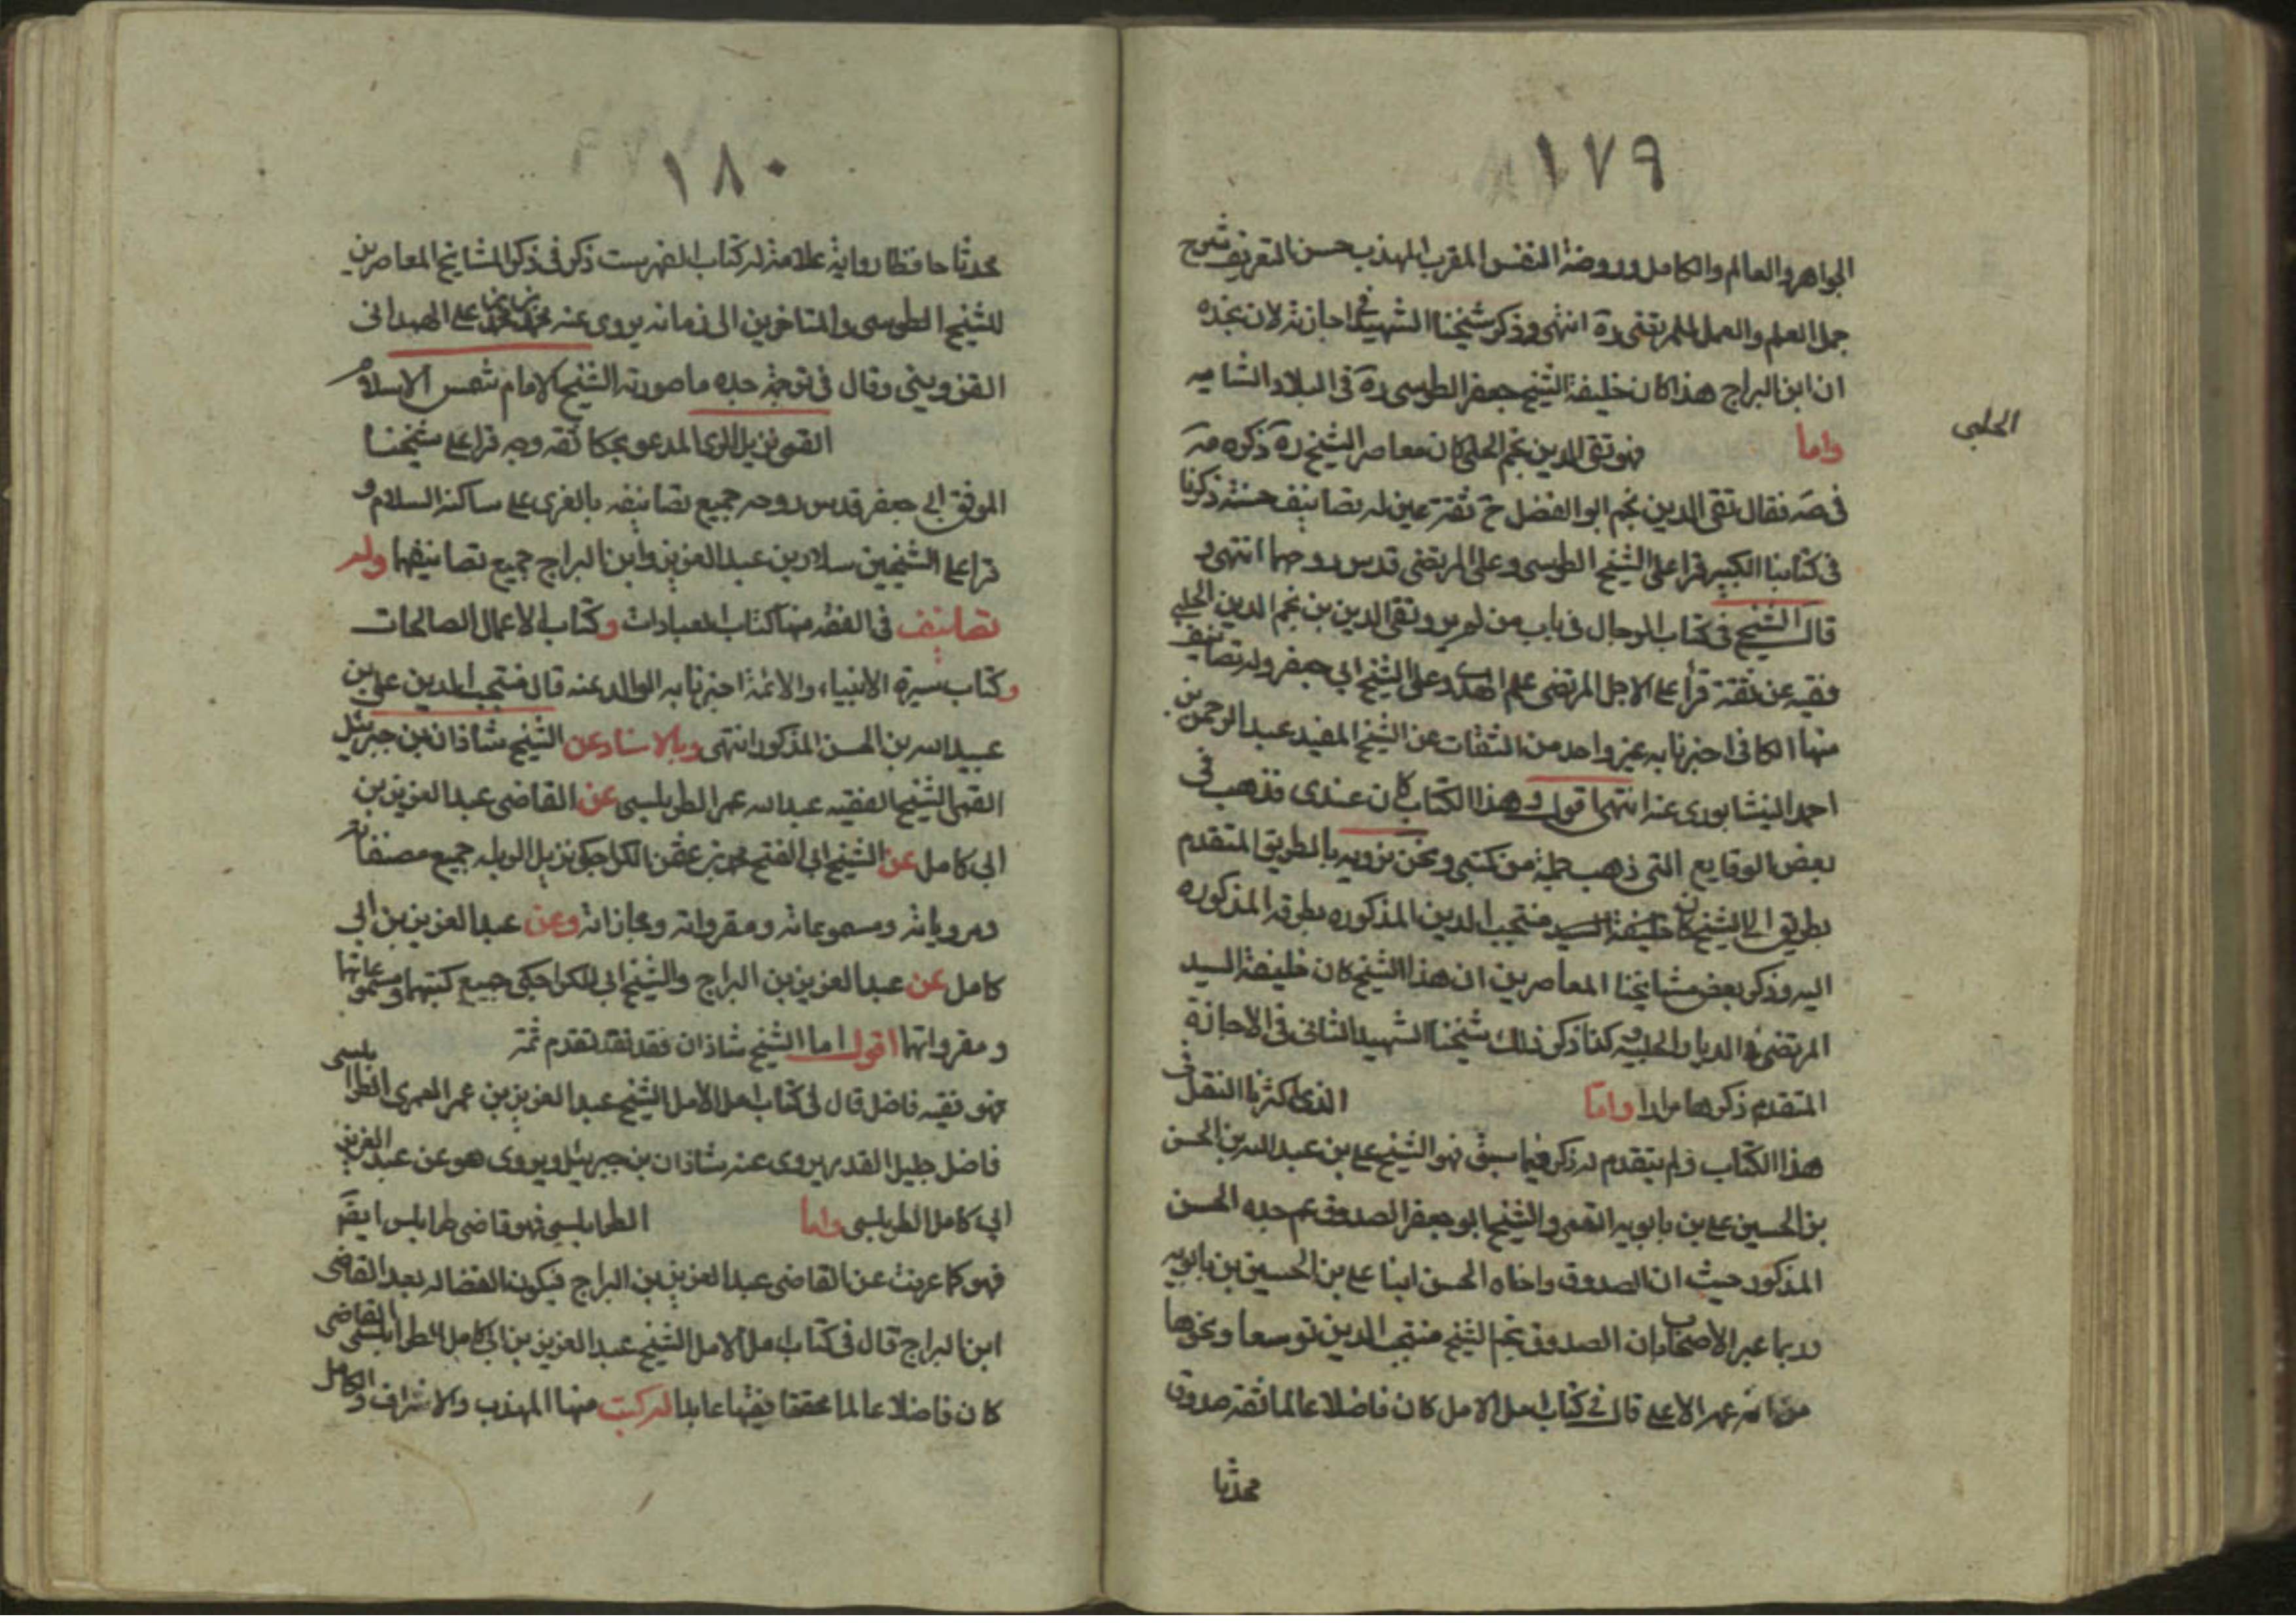 ١٧٩
الجواهر والعالم والكامل وروضة النفس المقرب المهذب حسن التعريف شرح
جمل العلم والعمل للمرتضى ره انتهى وذكر شيخنا الشهيد في اجازته لابن نجده
ان ابن البراج هذا كان خليفة الشيخ جعفر الطوسى ره في البلاد الشاميه
واما فهو تقى الدين نجم الحلبى كان معاصر الشيخ ره ذكره مه
الحلبى
في صه فقال تقى الدين نجم ابو الفضل ح ثقة عين له تصانيف حسنة ذكرنا
في كتابنا الكبير قرا على الشيخ الطوسى وعلى المرتضى قدس روحهما انتهى و
قال الشيخ في كتاب الرجال في باب من لم يرو تقى الدين بن نجم الدين الحلبى
فقيه عين ثقة قرأ على الاجل المرتضى علم الهدى وعلى الشيخ ابى جعفر وله تصانيف
منها الكافى اخبرنا به غير واحد من الثقات عن الشيخ المفيد عبد الرحمن بن
احمد النيشابورى عنه انتهى اقول وهذا الكتاب كان عندى فذهب في
بعض الوقايع التى ذهب جملة من كتبى ونحن نرويه بالطريق المتقدم
بطريق الى الشيخ كان خليفة السيد منتجب الدين المذكوره بطرقه المذكوره
اليه وذكر بعض مشايخنا المعاصرين ان هذا الشيخ كان خليفة السيد
المرتضى في الديار الحلبيه كذا ذكر ذلك شيخنا الشهيد الثانى في الاجازة
المتقدم ذكرها مرارا واما الذى اكثرنا النقل في
هذا الكتاب ولم يتقدم له ذكر فيما سبق فهو الشيخ على بن عبد الله بن الحسن
بن الحسين على بن بابويه القمى والشيخ ابو جعفر الصدوق عم جده الحسن
المذكور حيث ان الصدوق واخاه الحسن ابنا على بن الحسين بن بابويه
وربما عبر الاصحاب بان الصدوق عم الشيخ منتجب الدين توسعا وتجوزا
عمه الاعلى قال في كتاب امل الامل كان فاضلا عالما ثقة صدوق
محدثا
١٨٠
محدثا حافظا رواية علامة له كتاب الفهرست ذكر في ذكر المشايخ المعاصرين
للشيخ الطوسى والمتاخرين الى زمانه يروى عنه محمد بن محمد بن على الهمدانى
القزوينى وقال في ترجمة جده ما صورته الشيخ الامام شمس الاسلام
القمى نزيل الرى المدعو بحكا ثقه وجه قرا على شيخنا
الموفق ابى جعفر قدس روحه جميع تصانيفه بالغرى على ساكنه السلام و
قرا على الشيخين سلار بن عبد العزيز وابن البراج جميع تصانيفهما وله
تصانيف في الفقه منها كتاب العبادات وكتاب الاعمال الصالحات
وكتاب سيرة الانبياء والائمة اخبرنا به الوالد عنه قال منتجب الدين على بن
عبيد الله بن الحسن المذكور انتهى وبالاسناد عن الشيخ شاذان بن جبرئيل
القمى الشيخ الفقيه عبد الله عمر الطربلسى عن القاضى عبد العزيز بن
ابى كامل عن الشيخ ابى الفتح محمد بن عثمن الكراجكى نزيل الرمله جميع مصنفاته
ومروياته ومسموعاته ومقرواته ومجازاته وعن عبد العزيز بن ابى
كامل عن عبد العزيز بن البراج والشيخ ابى الكراجكى جميع كتبهما ومسموعاتهما
ومقرواتهما اقول اما الشيخ شاذان فقد تقدم ثمة
فهو فقيه فاضل قال في كتاب امل الامل الشيخ عبد العزيز بن عمر العمرى الطرابلسى
فاضل جليل القدر يروى عنه شاذان بن جبريئل ويروى هو عن عبد العزيز بن
ابى كامل الطربلسى واما الطرابلسى فهو قاضى طرابلس ايضا
فهو كما عرفت عن القاضى عبد العزيز بن البراج فيكون القضا له بعد القاضى
ابن البراج قال في كتاب امل الامل الشيخ عبد العزيز بن ابى كامل الطرابلسى القاضى
كان فاضلا عالما محققا فقيها عابدا له كتب منها المهذب والاشراف والكامل